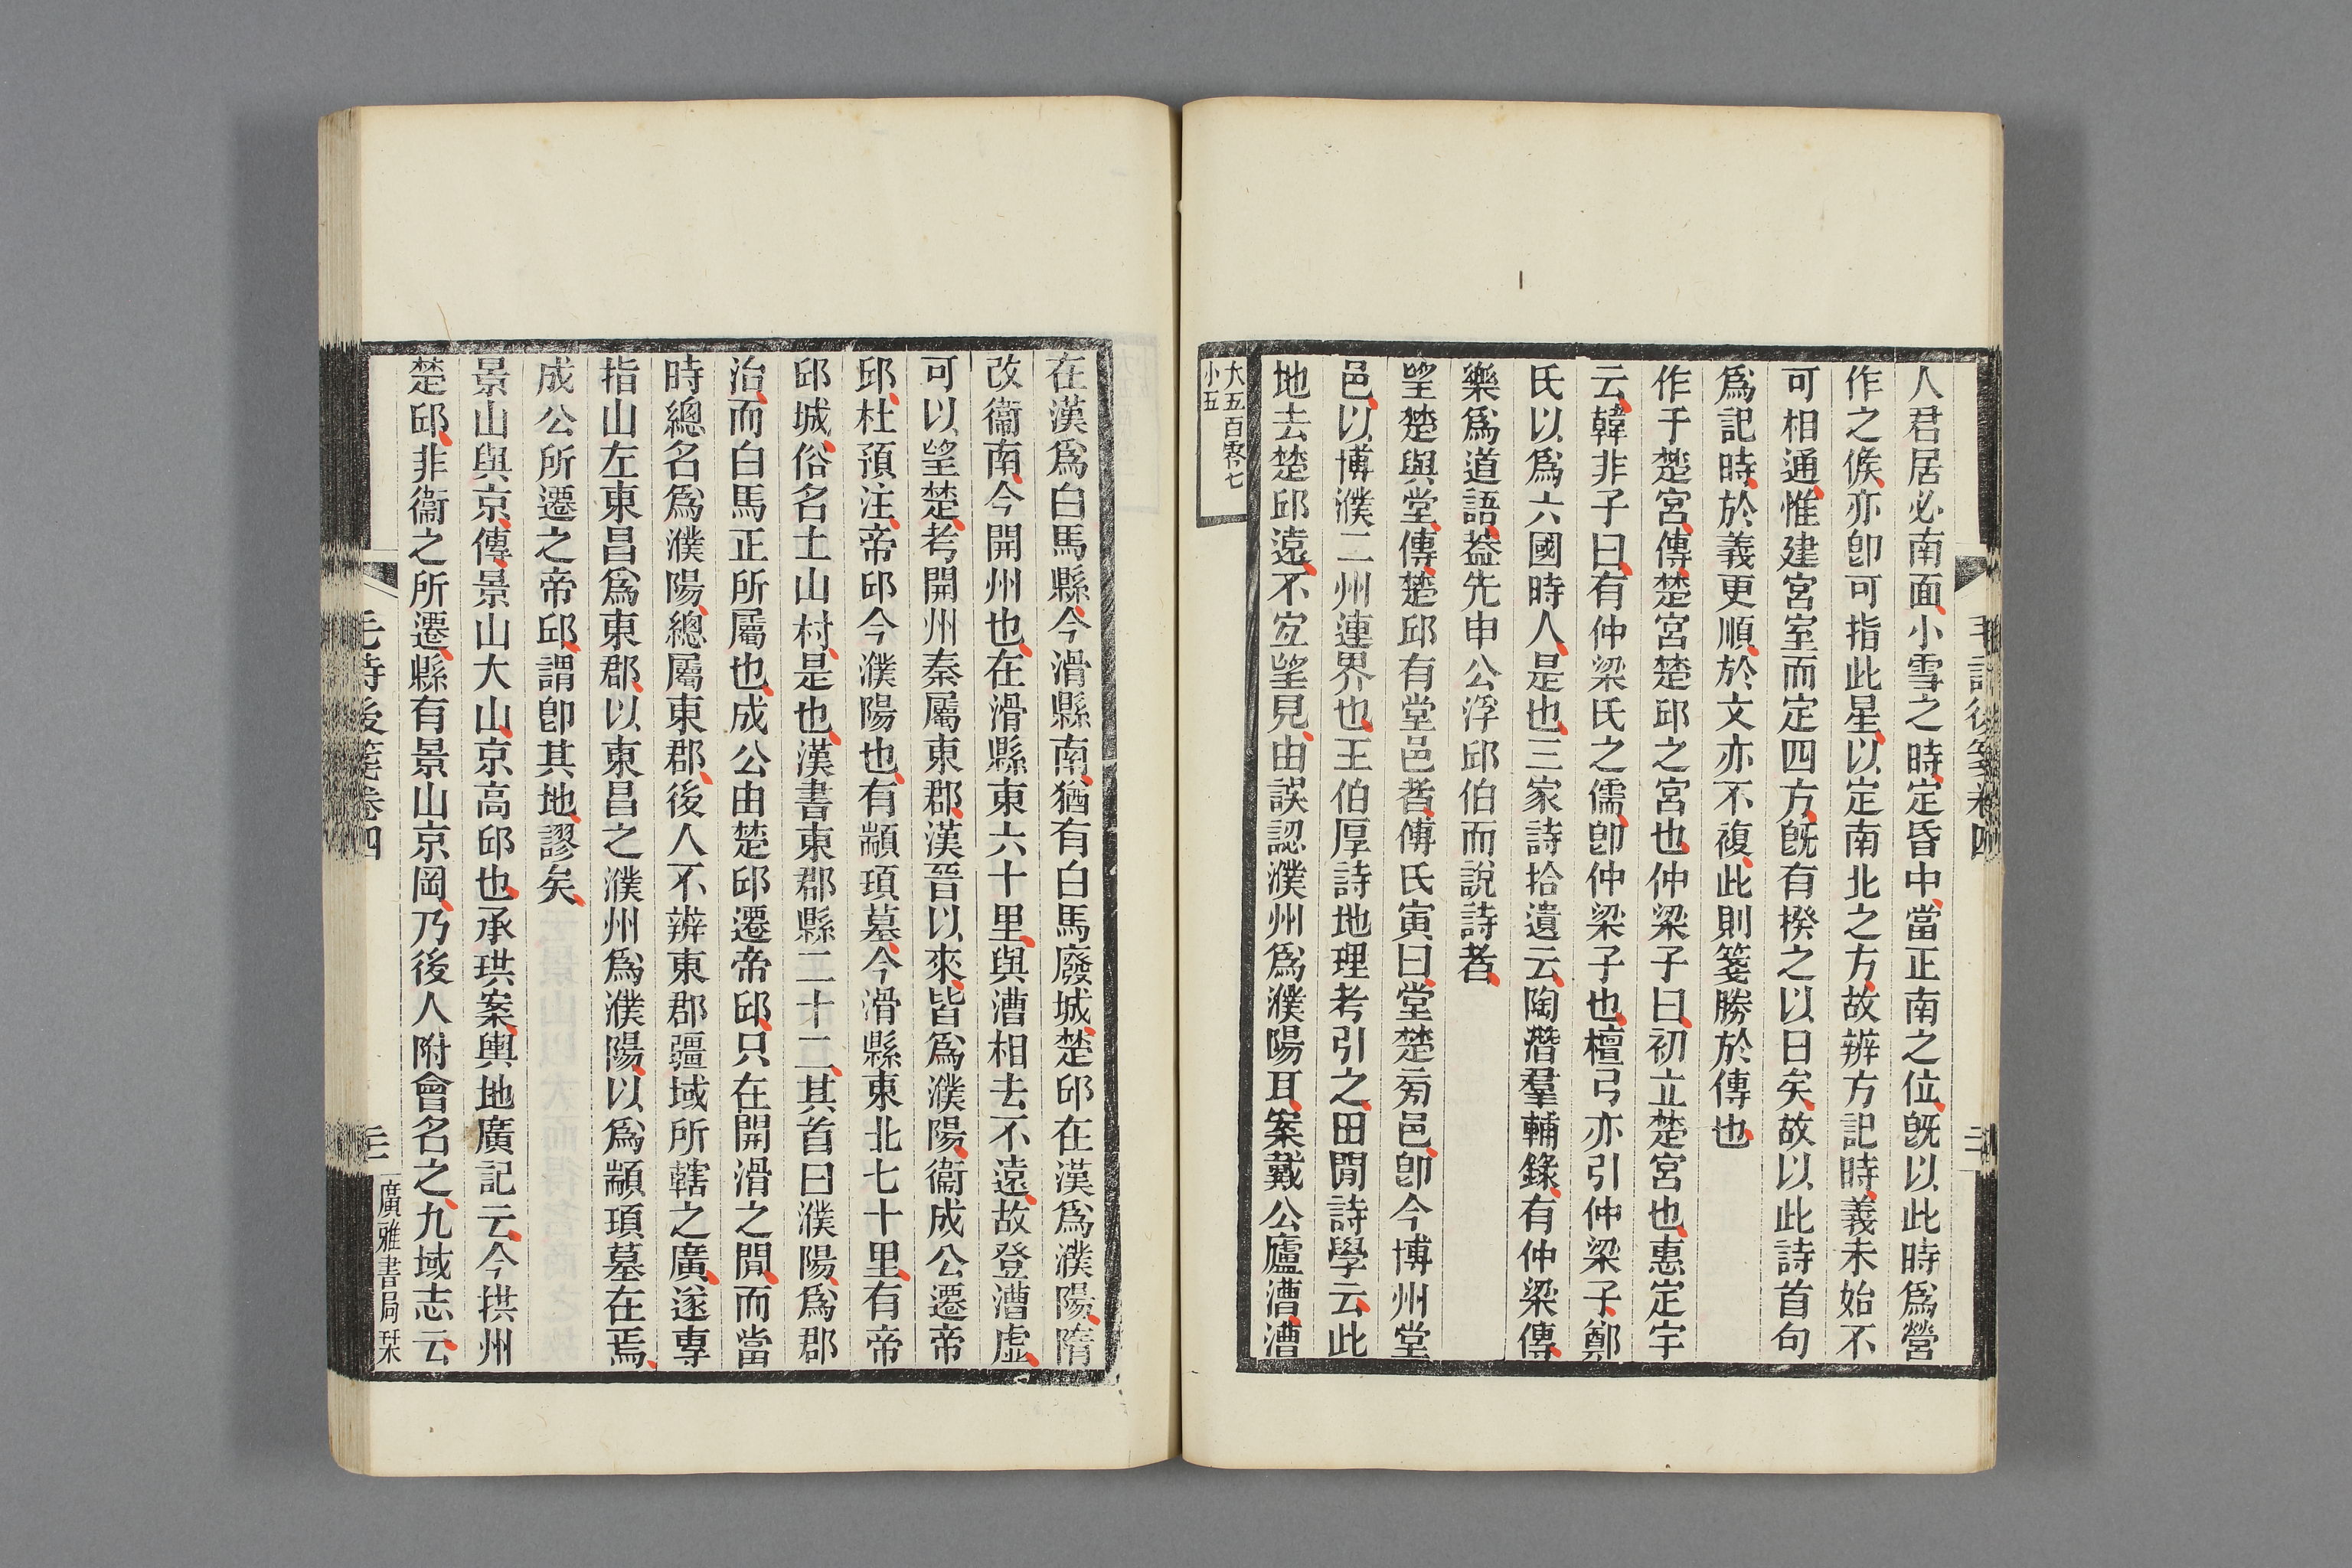 人君居必南面小雪之時定昏中當正南之位旣以此時爲營
作之候亦卽可指此星以定南北之方故辨方記時義未始不
可相通惟建宮室而定四方旣有揆之以日矣故以此詩首句
爲記時於義更順於文亦不複此則箋勝於傳也
作于楚宮傳楚宮楚邱之宮也仲梁子曰初立楚宮也惠定宇
云韓非子曰有仲梁氏之儒卽仲梁子也檀弓亦引仲梁子鄭
氏以爲六國時人是也三家詩拾遺云陶潛羣輔錄有仲梁傳
樂爲道語葢先申公浮邱伯而說詩者
望楚與堂傳楚邱有堂邑者傅氏寅曰堂楚旁邑卽今博州堂
邑以博濮二州連界也王伯厚詩地理考引之田閒詩學云此
地去楚邱遠不宐望見由誤認濮州爲濮陽耳案戴公廬漕漕
大五百零七
小五
在漢爲白馬縣今滑縣南猶有白馬廢城楚邱在漢爲濮陽隋
改衞南今開州也在滑縣東六十里與漕相去不遠故登漕虛
可以望楚考開州秦屬東郡漢晉以來皆爲濮陽衞成公遷帝
邱杜預注帝邱今濮陽也有顓頊墓今滑縣東北七十里有帝
邱城俗名土山村是也漢書東郡縣二十二其首曰濮陽爲郡
治而白馬正所屬也成公由楚邱遷帝邱只在開滑之閒而當
時總名爲濮陽總屬東郡後人不辨東郡疆域所轄之廣遂專
指山左東昌爲東郡以東昌之濮州爲濮陽以爲顓頊墓在焉
成公所遷之帝邱謂卽其地謬矣
景山與京傳景山大山京高邱也承珙案輿地廣記云今拱州
楚邱非衞之所遷縣有景山京岡乃後人附會名之九域志云
毛詩後箋卷四
廣雅書局栞